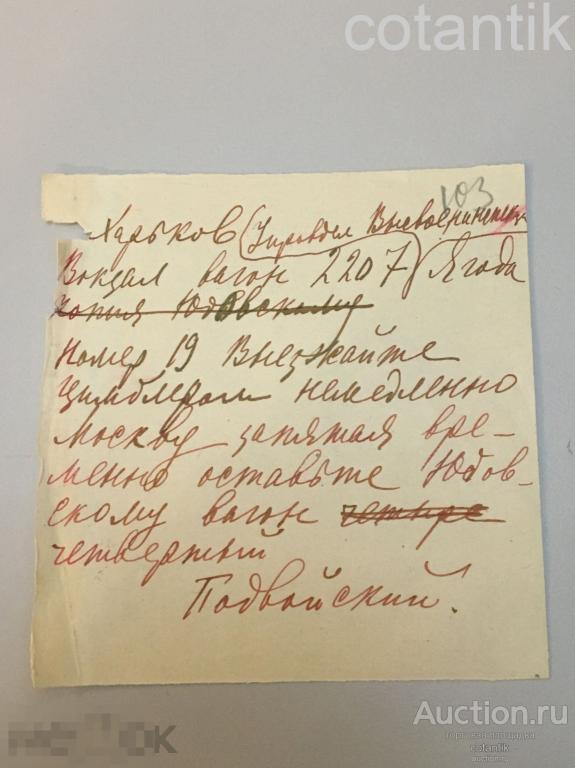 cotantik
103
Харьков (Управдел Высвоенинспек
Вокзал вагон 2207) Ягода
копия Юдовскому
Номер 19 Выезжайте
Цимблером немедленно
Москву запятая вре-
менно оставьте Юдов-
скому вагон четыре
четвертный
Подвойский.
Auction.ru
торговая площадка
cotantik
auction.ru